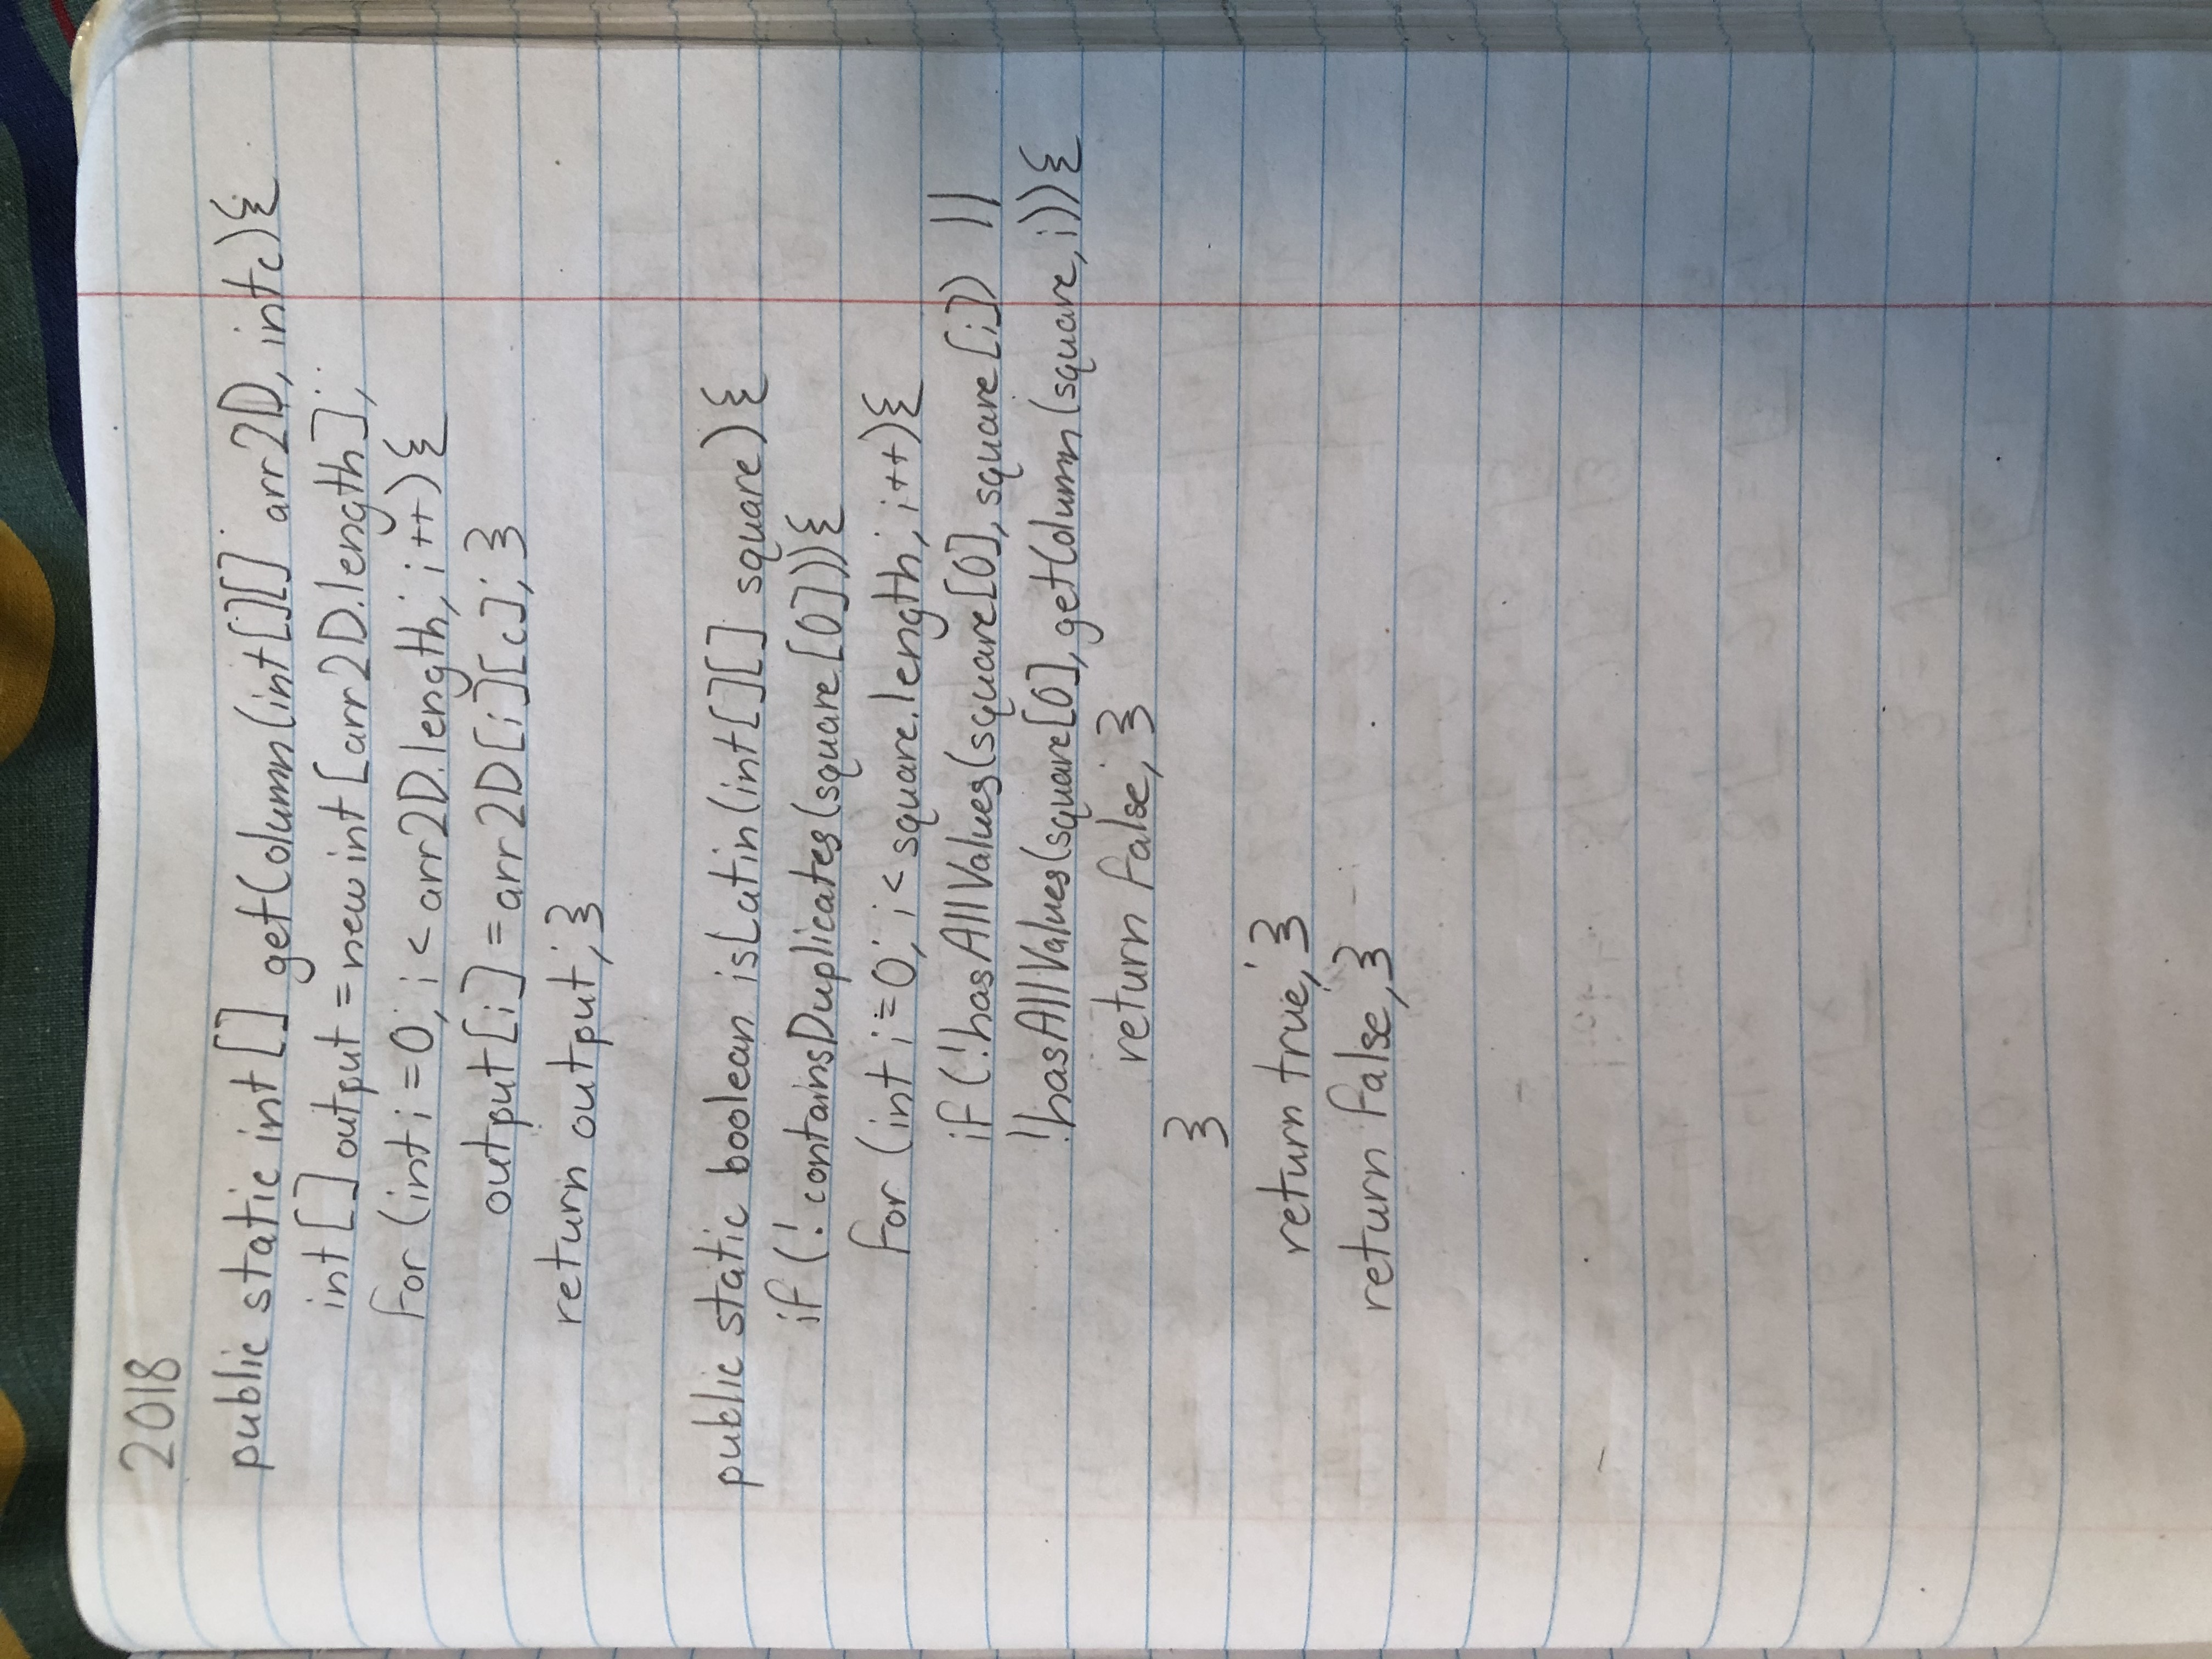 2018
public static int[] getColumn(int[][] arr2D, int c){
int[] output = new int[arr2D.length];
for (int i = 0; i < arr2D.length; i++){
output[i] = arr2D[i][c]; }
return output; }
public static boolean isLatin(int[][] square){
if (! containsDuplicates(square[0])){
for (int i = 0; i < square.length; i++){
if (!hasAllValues(square[0], square[i]) ||
!hasAllValues(square[0], getColumn(square, i)){
return false; }
}
return true; }
return false; }